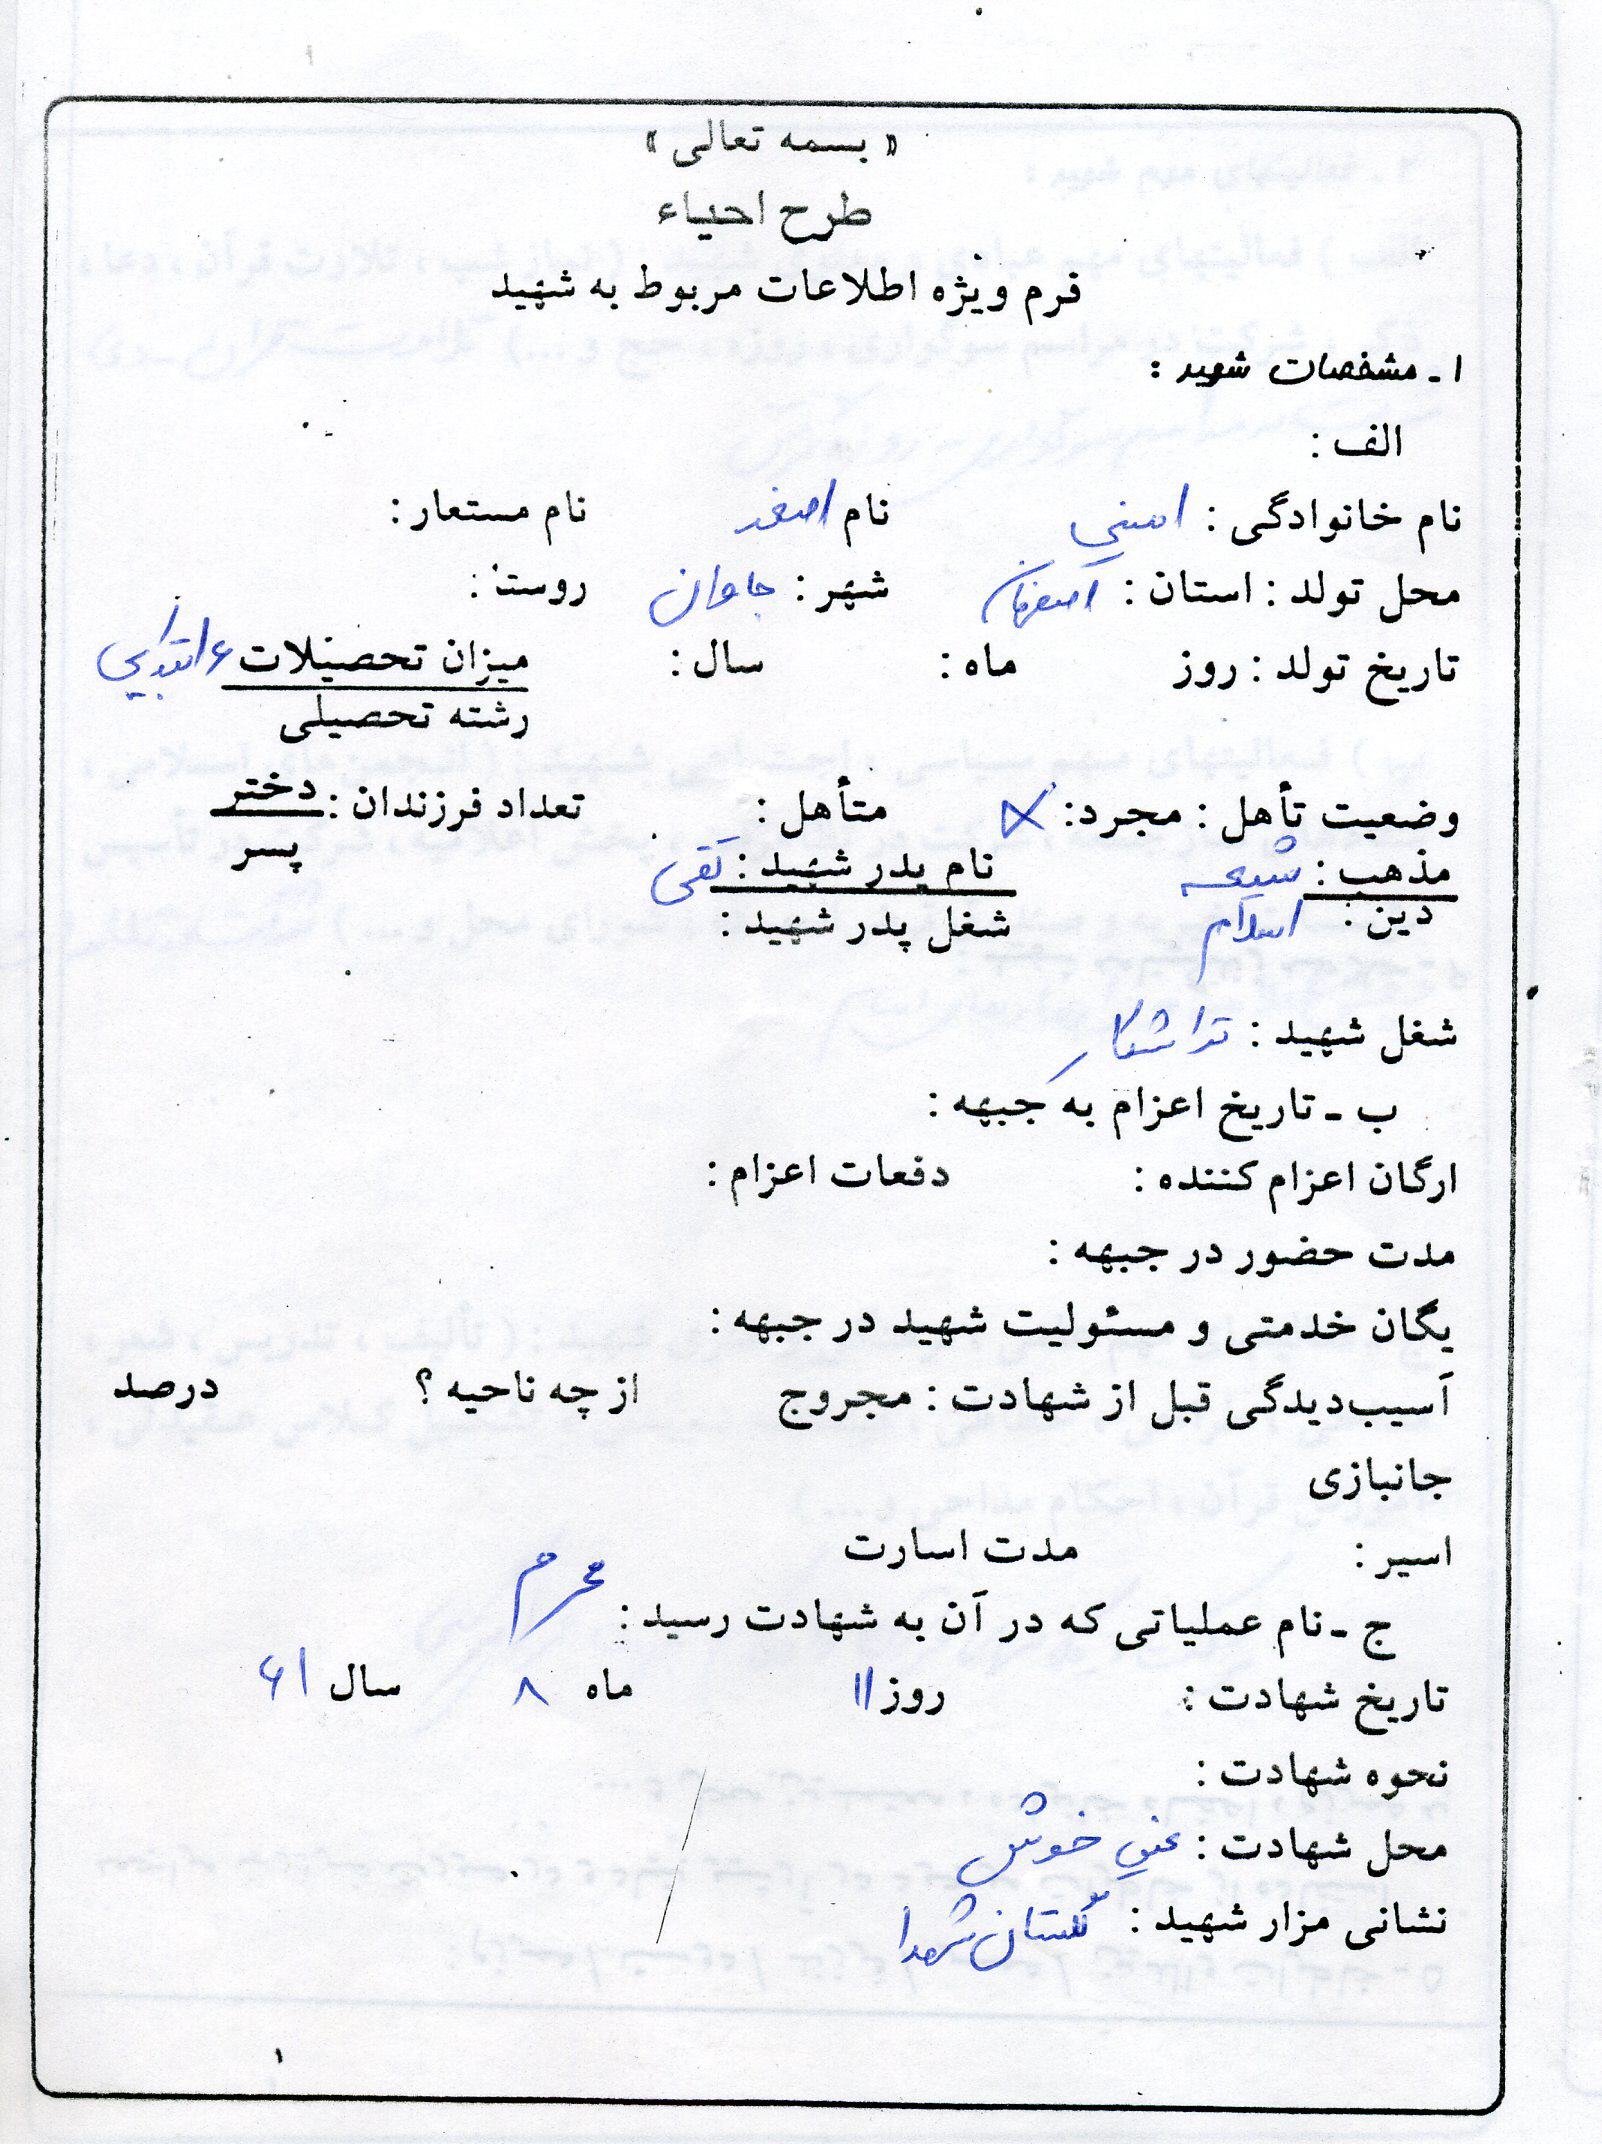 « بسمه تعالی »
طرح احیاء
فرم ویژه اطلاعات مربوط به شهید
۱ ـ مشخصات شهید :
الف :
نام خانوادگی : امینی نام اصغر نام مستعار :
محل تولد : استان : اصفهان شهر : جاوان روستا :
تاریخ تولد : روز ماه : سال : میزان تحصیلات ۶ ابتدایی
رشته تحصیلی
وضعیت تأهل : مجرد : × متأهل : تعداد فرزندان : دختر
پسر
مذهب : شیعه نام پدر شهید : تقی
دین : اسلام شغل پدر شهید :
شغل شهید : تراشکار
ب ـ تاریخ اعزام به جبهه :
ارگان اعزام کننده : دفعات اعزام :
مدت حضور در جبهه :
یگان خدمتی و مسئولیت شهید در جبهه :
آسیب‌دیدگی قبل از شهادت : مجروح از چه ناحیه ؟ درصد
جانبازی
اسیر : مدت اسارت
ج ـ نام عملیاتی که در آن به شهادت رسید : محرم
تاریخ شهادت : روز ۱۱ ماه ۸ سال ۶۱
نحوه شهادت :
محل شهادت : عین خوش
نشانی مزار شهید : گلستان شهدا
۱